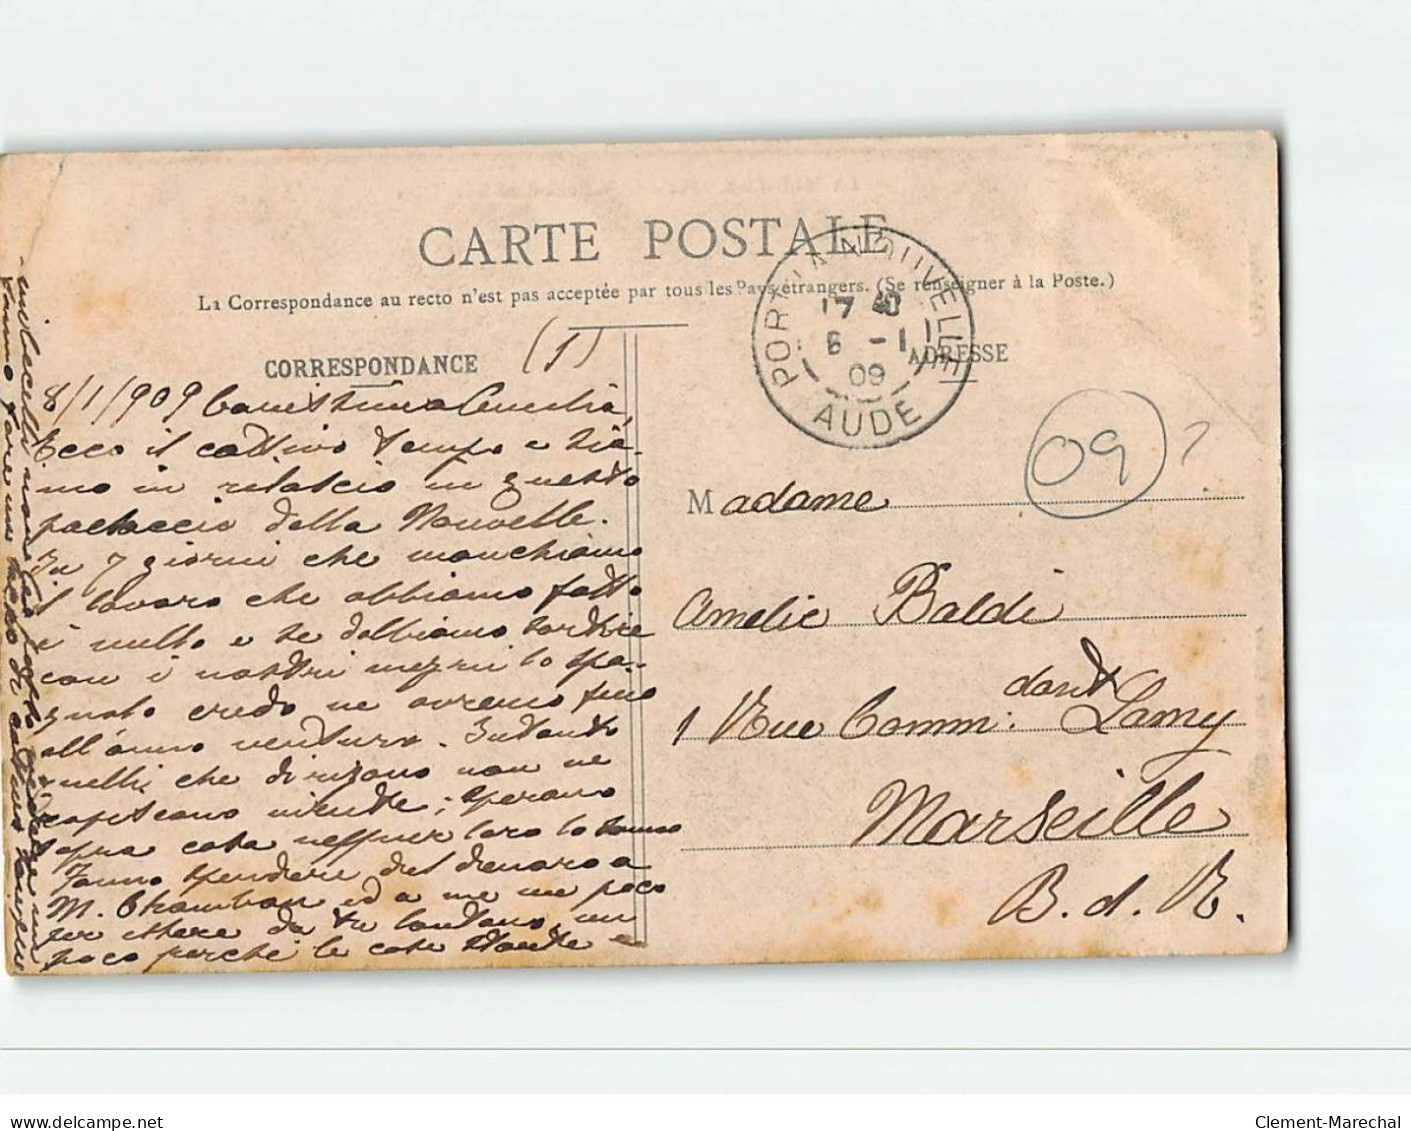 CARTE POSTALE
La Correspondance au recto n'est pas acceptée par tous les Pays étrangers. (Se renseigner à la Poste.)
PORT LA NOUVELLE
17 40
6 - 1
09
AUDE
CORRESPONDANCE
(1)
ADRESSE
09 ?
8/1/909 Carissima Amelia,
Ecco il cattivo tempo e sia-
mo in rilascio in questo
paesaccio della Nouvelle.
In 7 giorni che manchiamo
il lavoro che abbiamo fatto
è nullo e se dobbiamo sortire
con i nostri mezzi lo spa-
gnolo credo ne avremo fino
all'anno venturo. Intanto
quelli che dirizano non ne
capiscono niente; sperano
qua cosa neppur loro lo sanno
Fanno spendere del denaro a
M. Chambon ed a me un poco
per essere da te lontano, un
poco perchè le cose
imbecilli non
fanno fare un di cattivo
Madame
Amelie Baldi
1 Rue Comm: dant Lamy
Marseille
B. d. R.
Clement-Marechal
delcampe.net